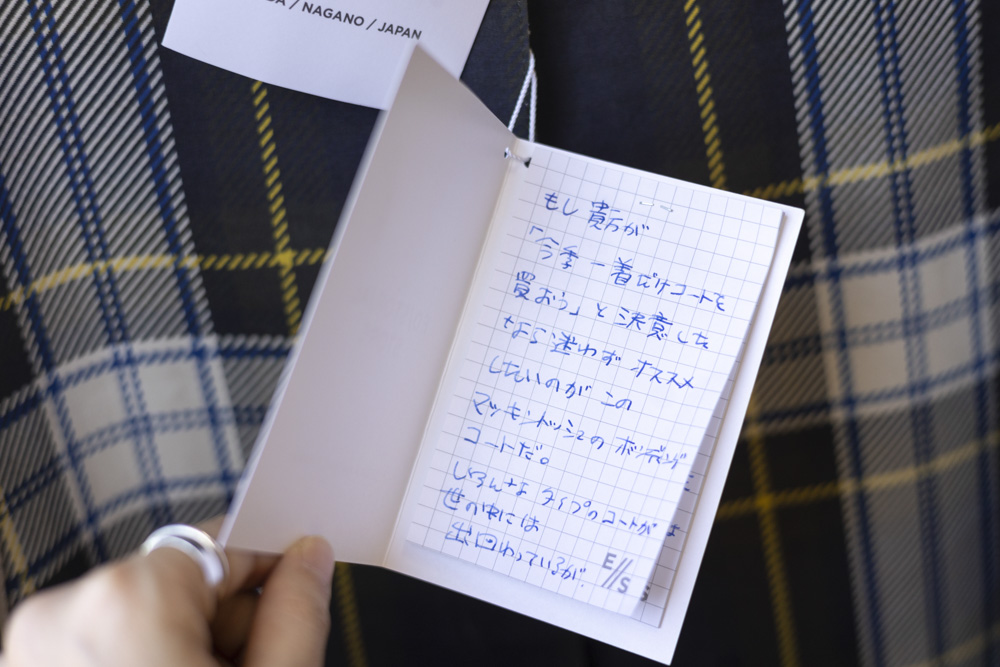 / NAGANO / JAPAN
もし貴方が
「今季一着だけコートを
買おう」と決意した
なら迷わずオススメ
したいのがこの
マッキントッシュの
コートだ。
いろんなタイプのコートが
世の中には
出回わっているが
E//S